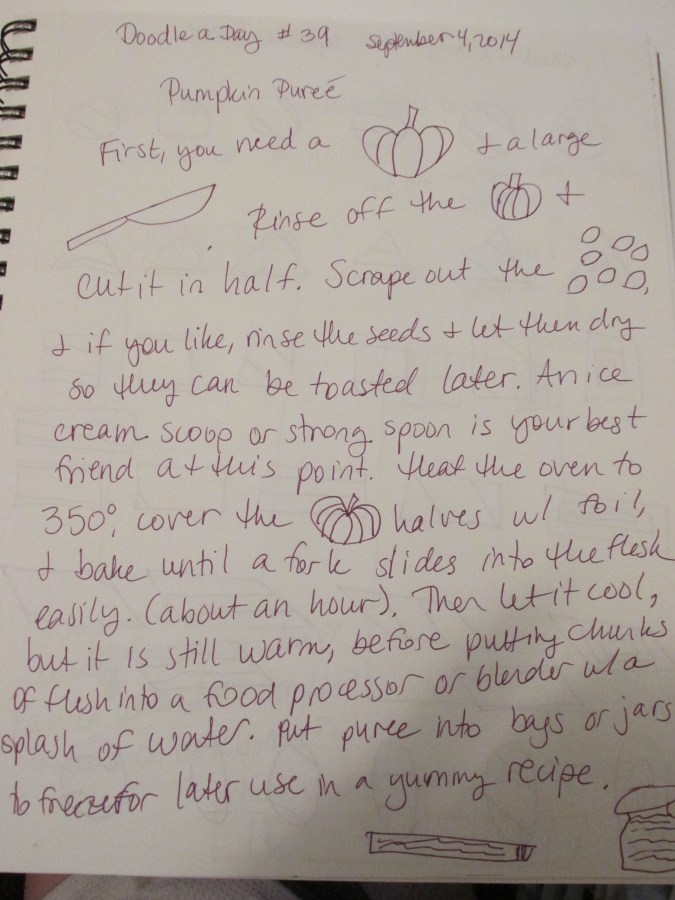 Doodle a Day # 39 September 4, 2014
Pumpkin Pureé
First, you need a + a large
Rinse off the +
cut it in half. Scrape out the
+ if you like, rinse the seeds + let then dry
so they can be toasted later. An ice
cream scoop or strong spoon is your best
friend at this point. Heat the oven to
350°, cover the halves w/ foil,
+ bake until a fork slides into the flesh
easily. (about an hour). Then let it cool,
but it is still warm, before putting chunks
of flesh into a food processor or blender w/ a
splash of water. Put puree into bags or jars
to freeze for later use in a yummy recipe.